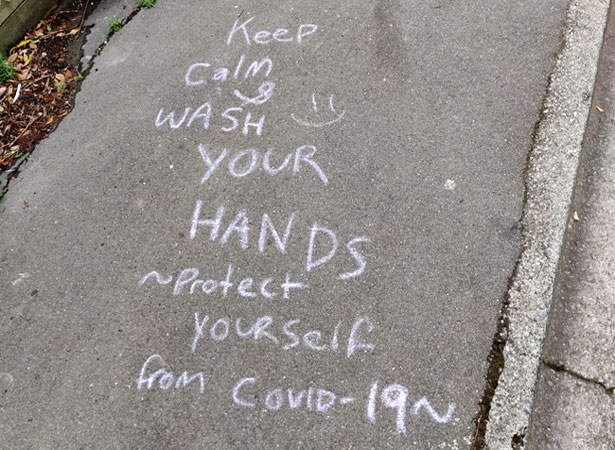 Keep
Calm
&
WASH
YOUR
HANDS
~Protect
YOURSElf
from COVID-19~